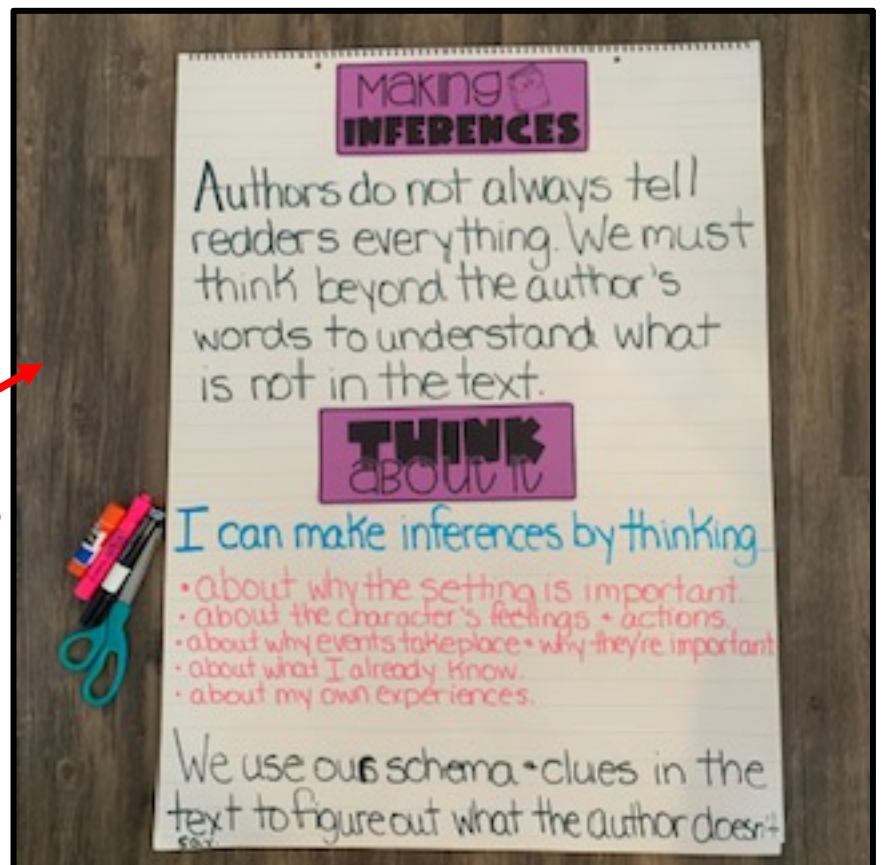 Making
INFERENCES
Authors do not always tell
readers everything. We must
think beyond the author's
words to understand what
is not in the text.
THINK
about it
I can make inferences by thinking...
• about why the setting is important.
• about the character's feelings + actions.
• about why events take place + why they're important
• about what I already know.
• about my own experiences.
We use our schema + clues in the
text to figure out what the author doesn't
say.